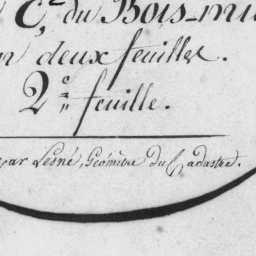 C, 2 du Bois-mi
n deux feuilles.
2e feuille.
par Lesné, Géomètre du Cadastre.